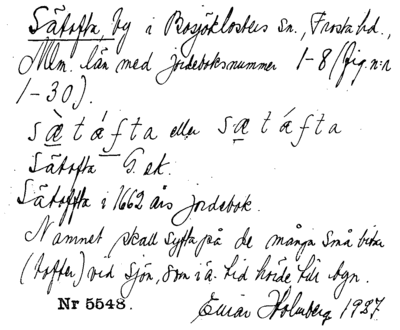 Sätofta, by i Bosjöklosters sn., Frosta hd.,
Mlm. län med jordeboksnummer 1-8 (fig. n:r
1-30).
sæ̀táfta eller sætáfta
Sätofta G. ek.
Sätoffta i 1662 års jordebok.
Namnet skall syfta på de många små bitar
(tofter) vid sjön, som i ä. tid hörde till byn.
Nr 5548. Einar Holmberg 1927.